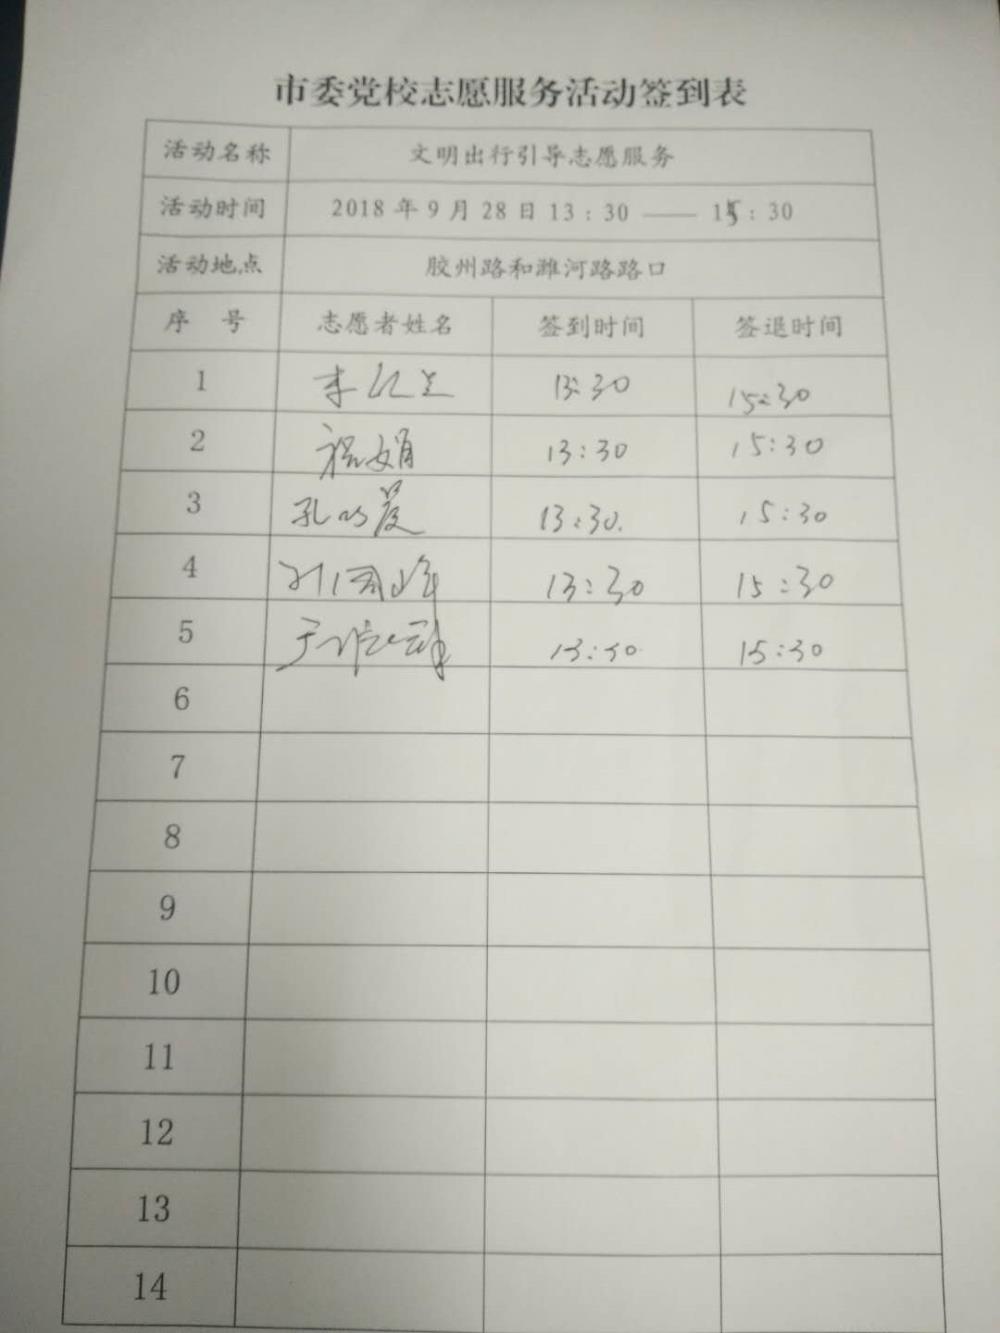 市委党校志愿服务活动签到表
活动名称 文明出行引导志愿服务
活动时间 2018年9月28日13:30——15:30
活动地点 胶州路和潍河路路口
序 号 志愿者姓名 签到时间 签退时间
1 李 13:30 15:30
2 程娟 13:30 15:30
3 孔 13:30. 15:30
4 13:30 15:30
5 于 13:30 15:30
6
7
8
9
10
11
12
13
14